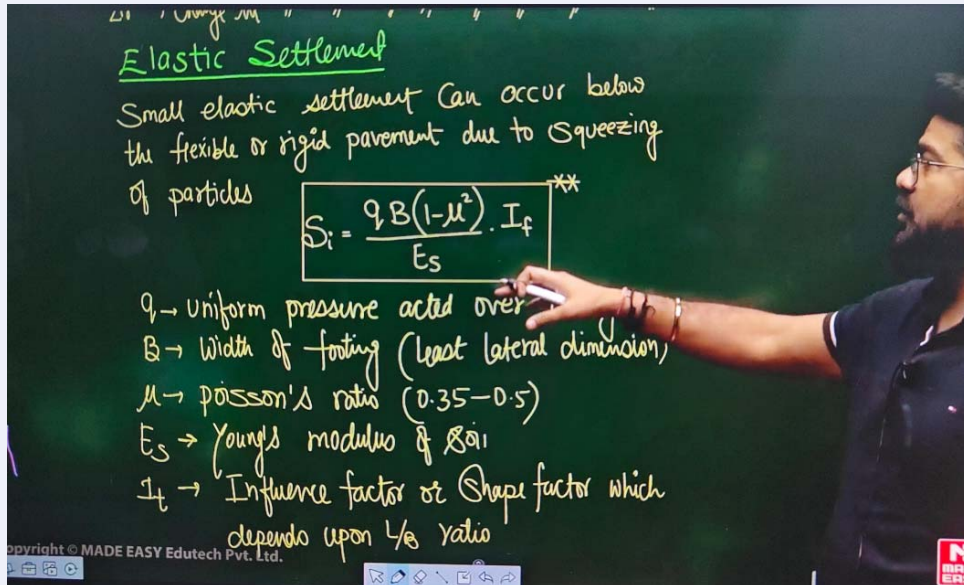 Elastic Settlement
Small elastic settlement Can occur below
the flexible or rigid pavement due to squeezing
of particles
**
Si = qB(1-μ²)/Es . If
q → Uniform pressure acted over
B → Width of footing (least lateral dimension)
μ → poisson's ratio (0.35-0.5)
Es → Young's modulus of soil
If → Influence factor or Shape factor which
depends upon L/B ratio
opyright © MADE EASY Edutech Pvt. Ltd.